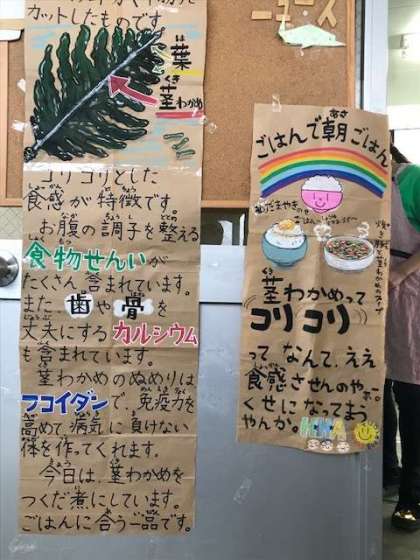 カットしたものです。
葉
茎わかめ
コリコリとした
食感が特徴です。
お腹の調子を整える
食物せんいが
たくさん含まれています。
また歯や骨を
丈夫にするカルシウム
も含まれています。
茎わかめのぬめりは
フコイダンで、免疫力を
高めて、病気に負けない
体を作ってくれます。
今日は、茎わかめを
つくだ煮にしています。
ごはんに合う一品です。
ニュース
ごはんで朝ごはん
茎わかめって
コリコリ
って、なんて、ええ
食感させんのやー。
くせになってまう
やんか。